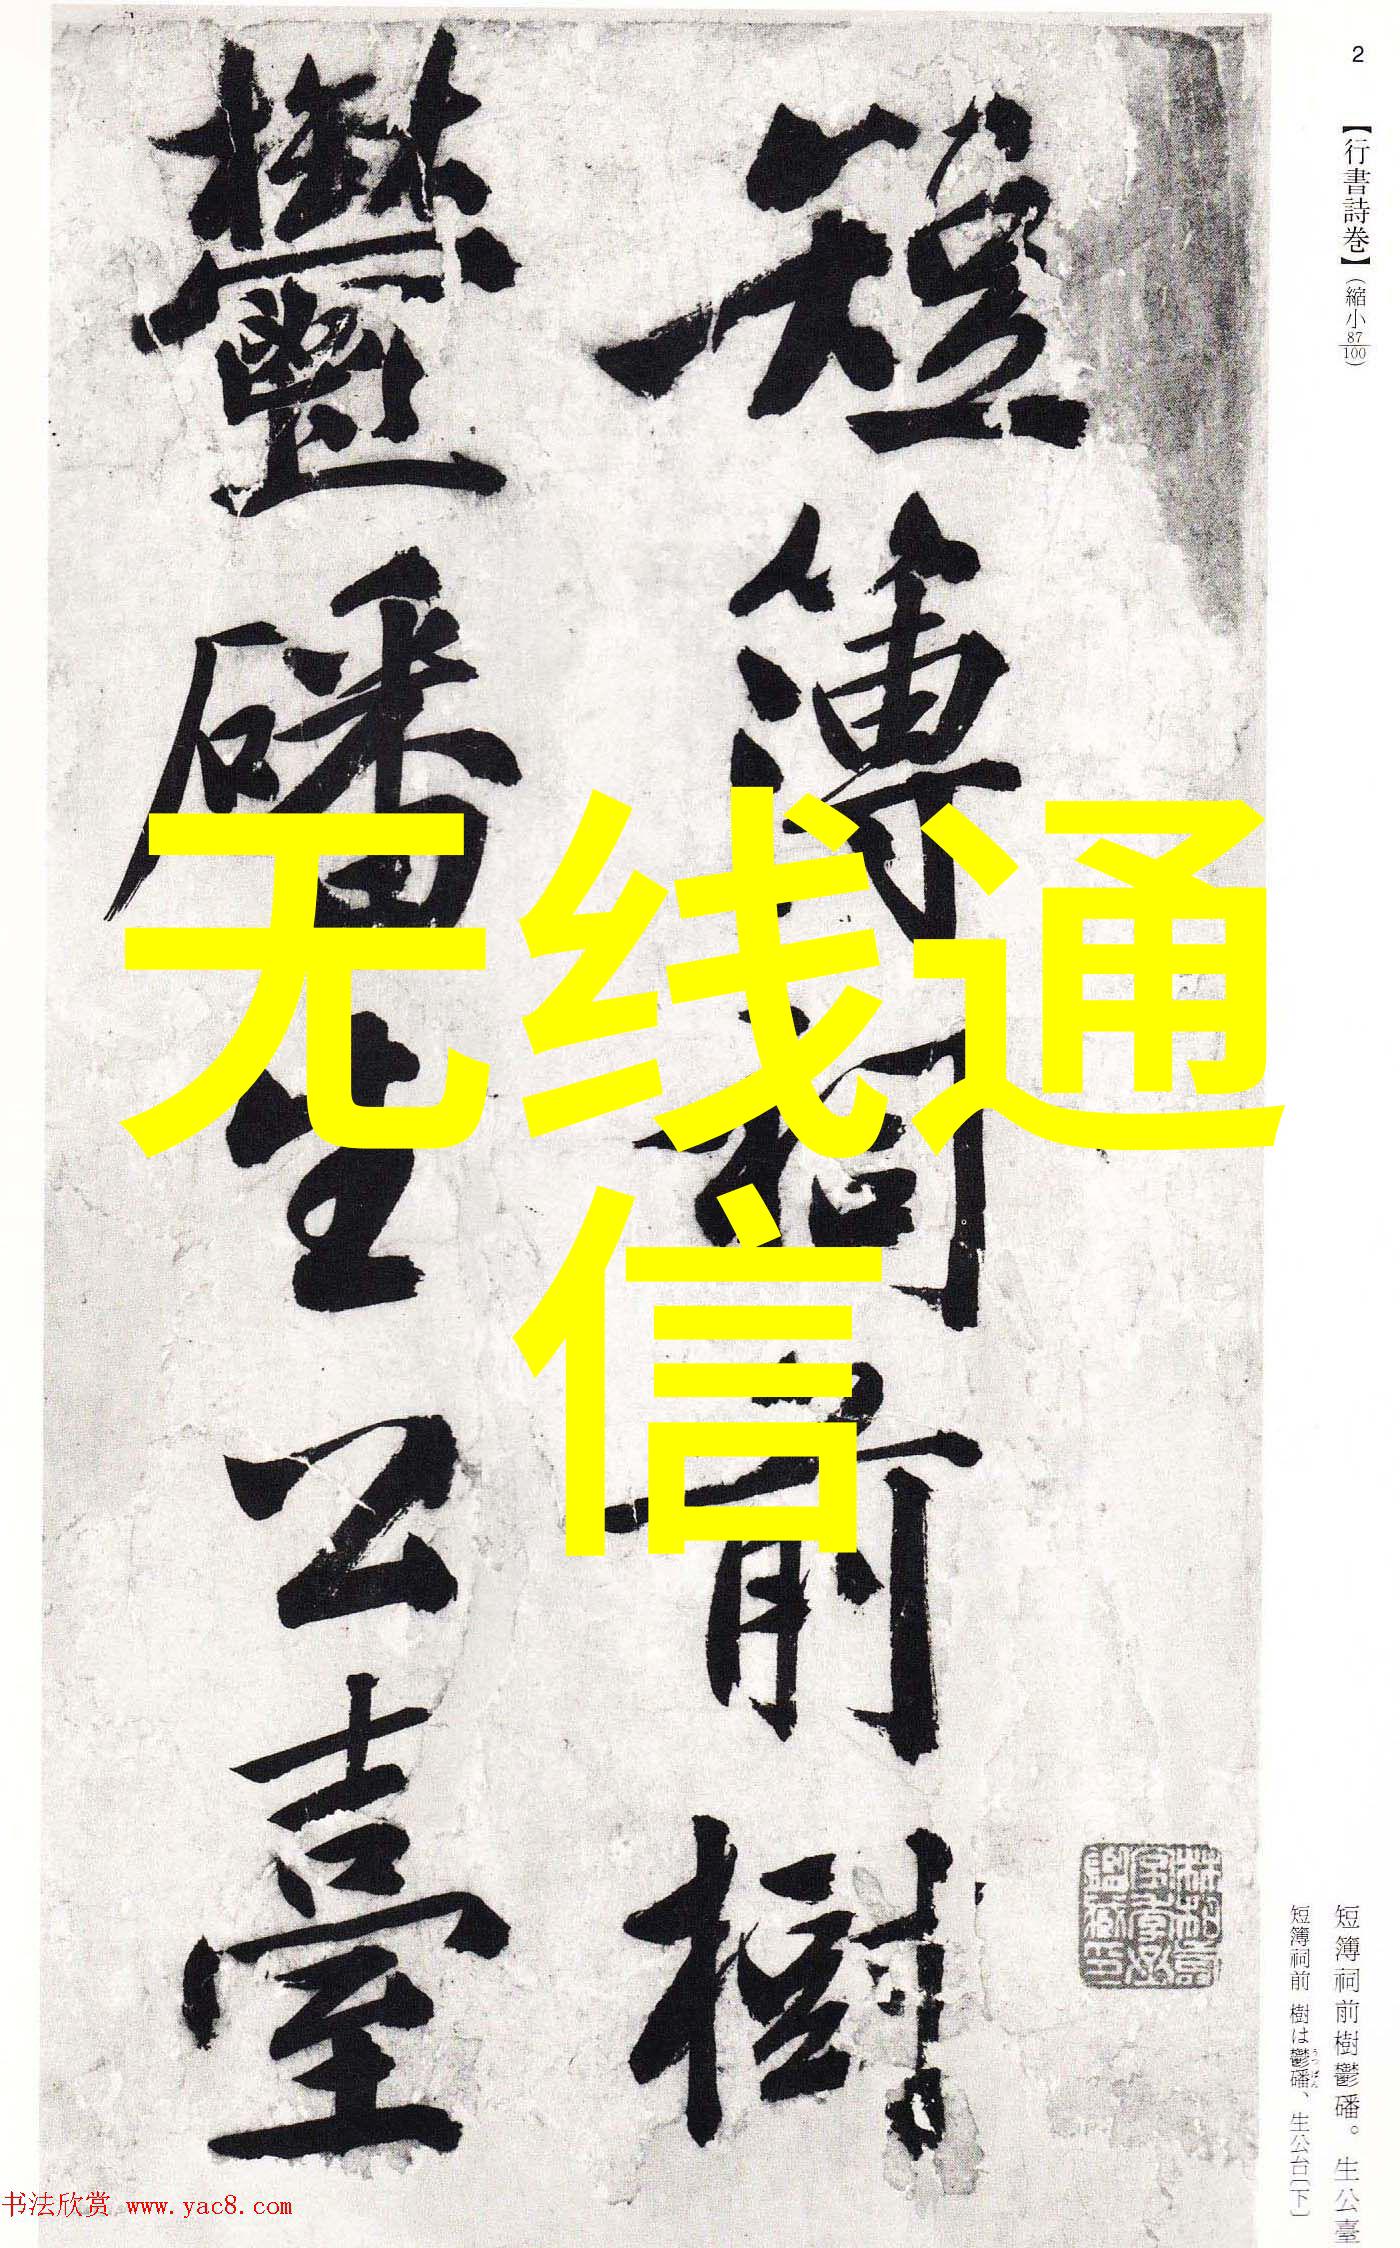 2
【行書詩卷】(縮小87/100)
短簿祠前樹
鬱磻生公臺
無线通
信
短簿祠前樹鬱磻。生公臺
短簿祠前 樹は鬱磻、生公台〔下〕
うつばん
书法欣赏 www.yac8.com